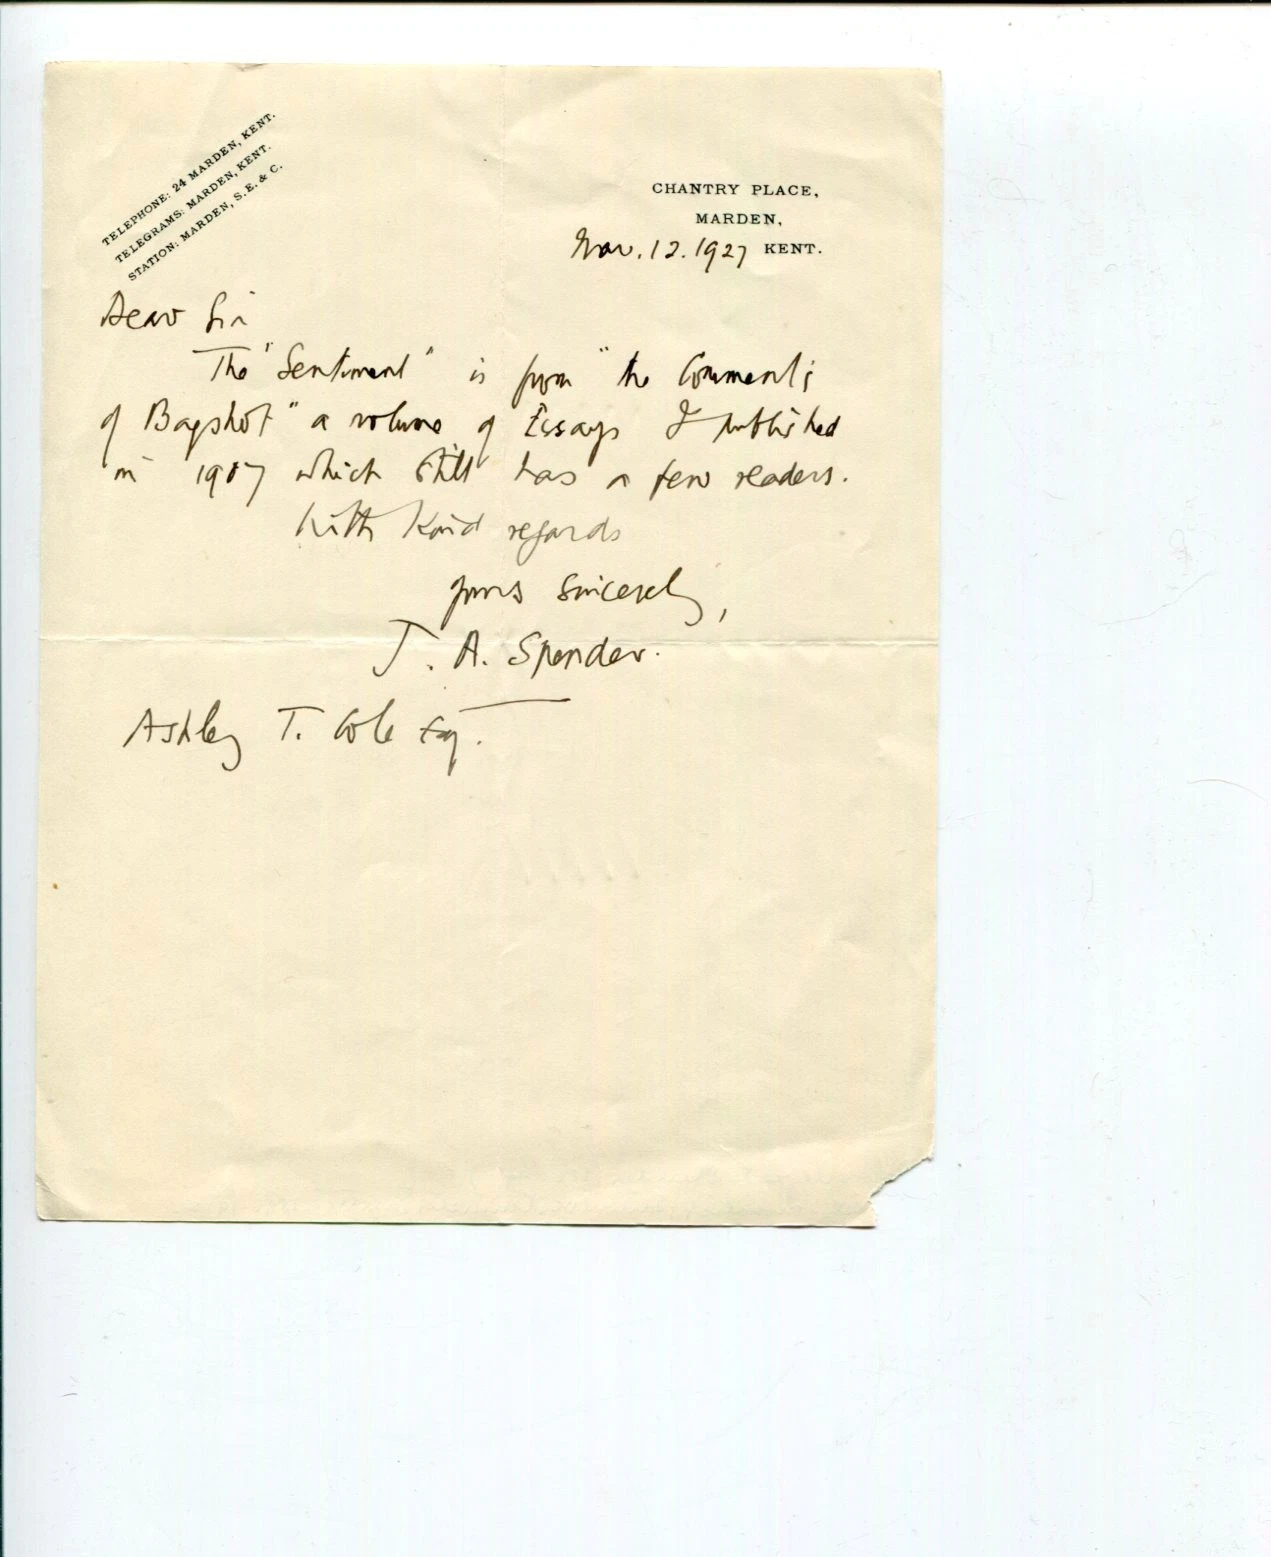 TELEPHONE: 24 MARDEN, KENT.
TELEGRAMS: MARDEN, KENT.
STATION: MARDEN, S. E. & C.
CHANTRY PLACE,
MARDEN,
Nov. 12. 1927 KENT.
Dear Sir
The "Sentiment" is from "the Comments
of Bagshot" a volume of Essays I published
in 1907 which still has a few readers.
With kind regards
yours sincerely,
J. A. Spender.
Ashley T. Cole Esq.